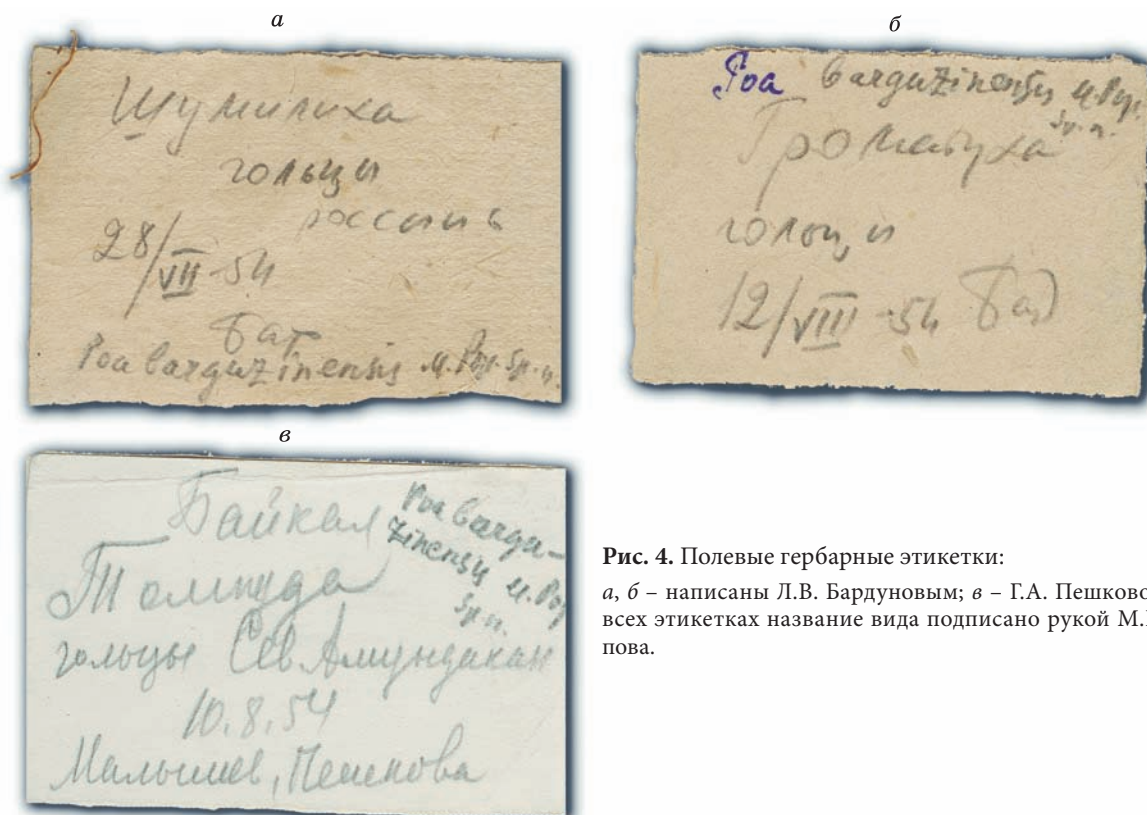 а
Шумилиха
гольцы
россыпь
28/VII-54
Бар
Poa barguzinensis M. Pop. sp. n.
б
Poa barguzinensis M. Pop.
sp. n.
Громатуха
гольцы
12/VIII-54 Бар
в
Байкал
Poa bargu-
zinensis M. Pop.
sp. n.
Томпуда
гольцы Сев. Амундакан
10.8.54
Малышев, Пешкова
Рис. 4. Полевые гербарные этикетки:
а, б – написаны Л.В. Бардуновым; в – Г.А. Пешково
всех этикетках название вида подписано рукой М.
пова.